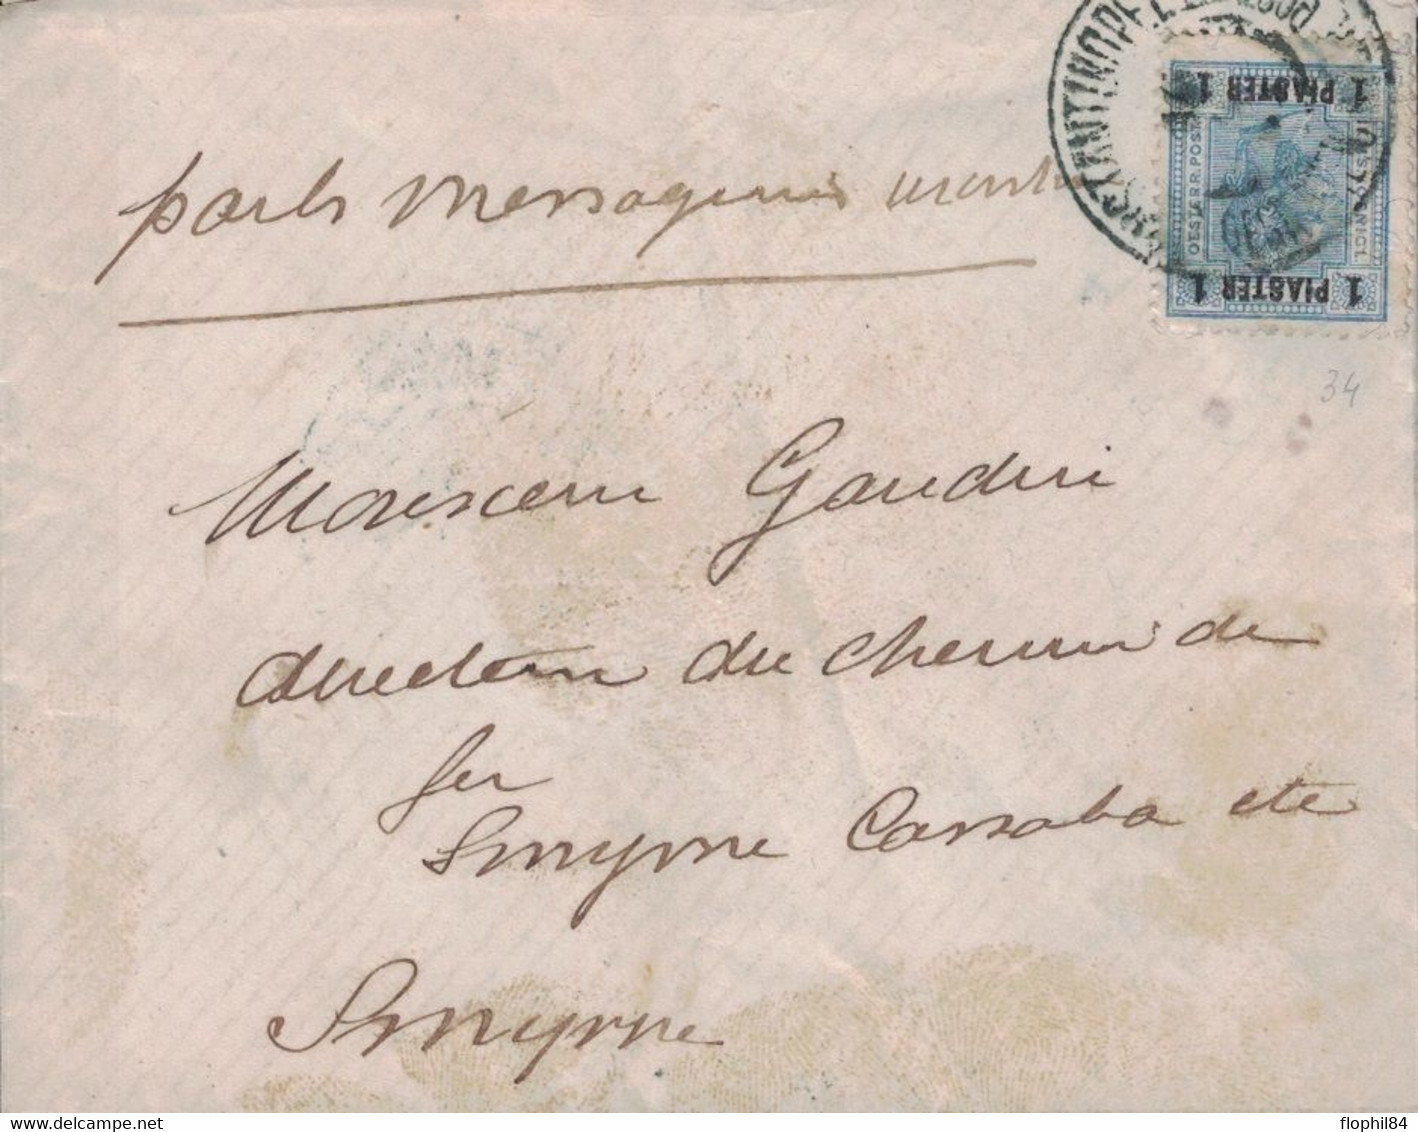 CONSTANTINOPEL
1 PIASTER 1
OESTERR. POST
1 PIASTER 1
34
par les Messageries
Monsieur Gaudin
directeur du chemin de
fer
Smyrne Cassaba etc
Smyrne
flophil84